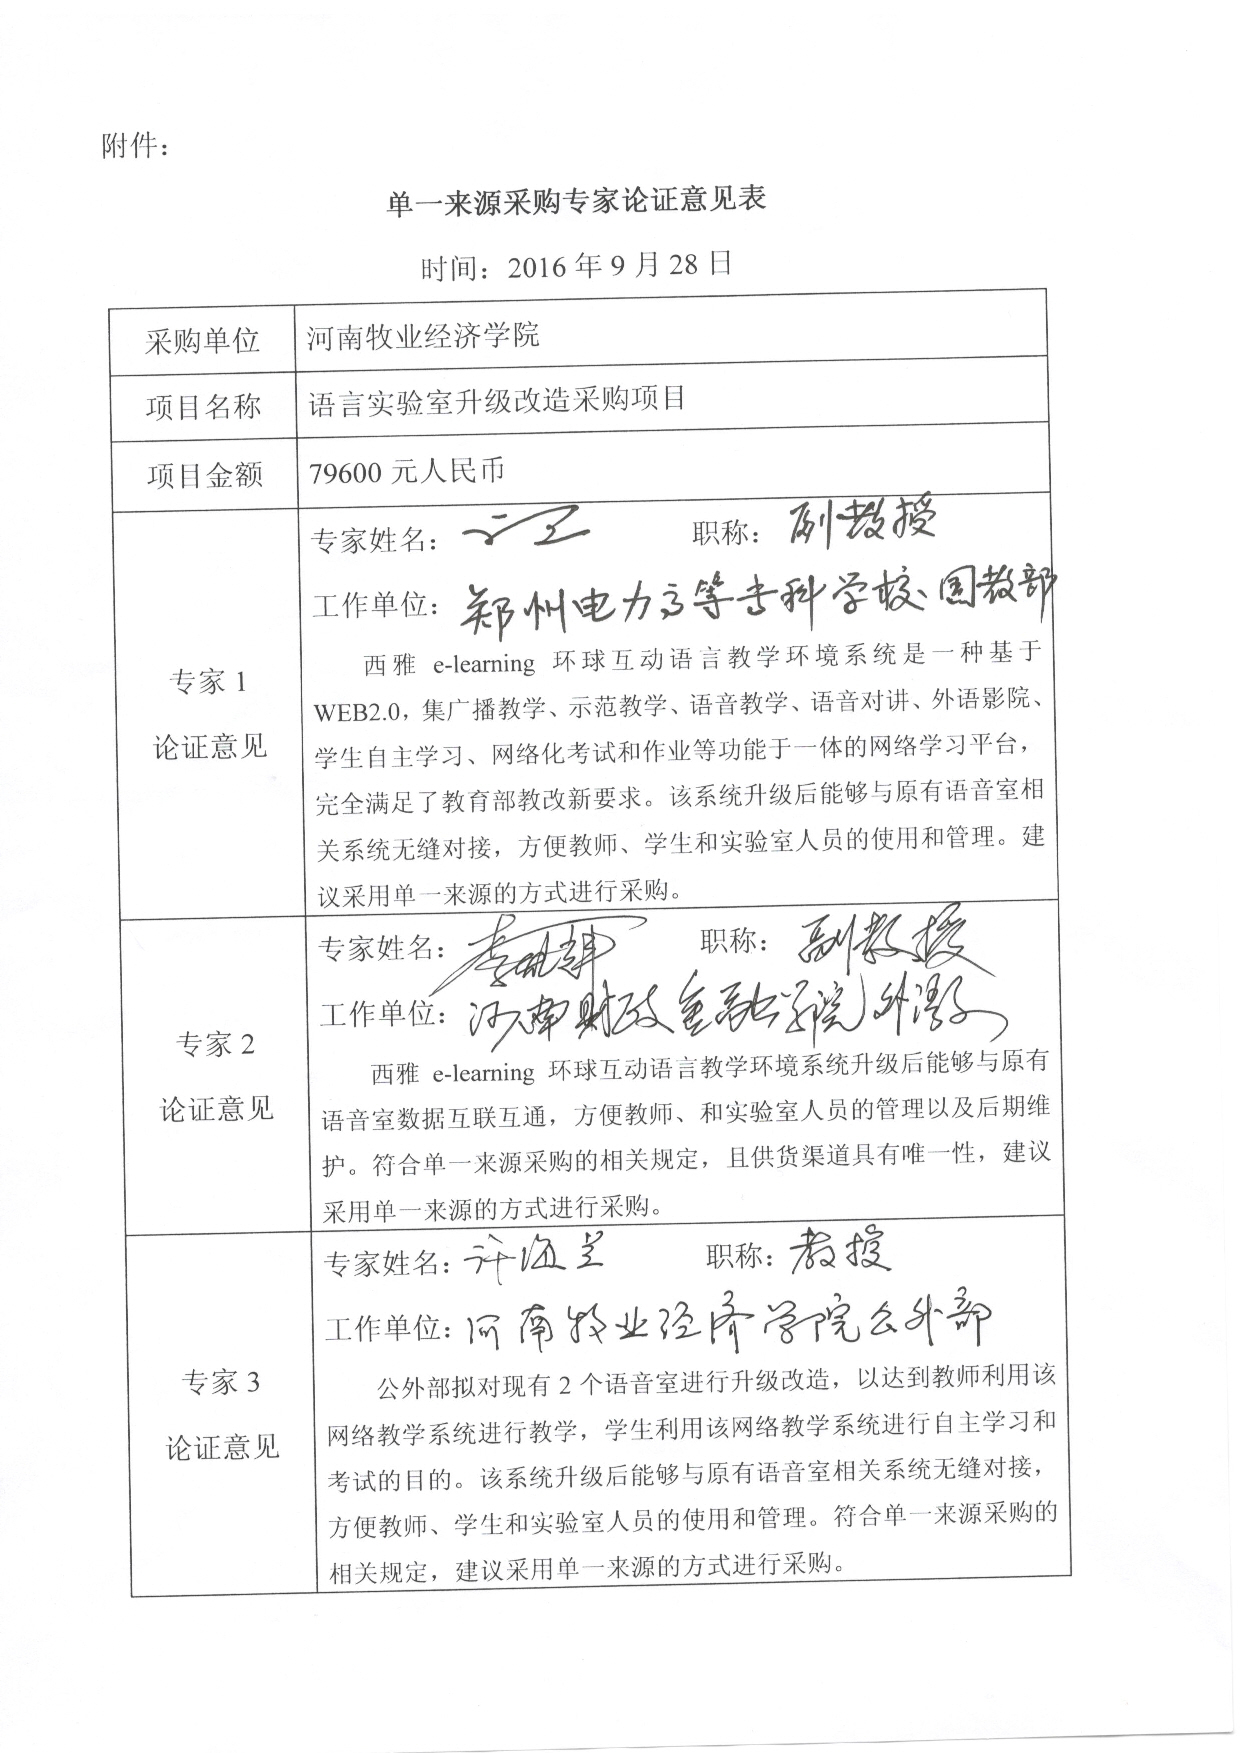 附件：
单一来源采购专家论证意见表
时间：2016 年 9 月 28 日
采购单位 河南牧业经济学院
项目名称 语言实验室升级改造采购项目
项目金额 79600 元人民币
专家 1
论证意见
专家姓名： 职称：副教授
工作单位：郑州电力高等专科学校国教部
西雅 e-learning 环球互动语言教学环境系统是一种基于
WEB2.0，集广播教学、示范教学、语音教学、语音对讲、外语影院、
学生自主学习、网络化考试和作业等功能于一体的网络学习平台，
完全满足了教育部教改新要求。该系统升级后能够与原有语音室相
关系统无缝对接，方便教师、学生和实验室人员的使用和管理。建
议采用单一来源的方式进行采购。
专家 2
论证意见
专家姓名： 职称：副教授
工作单位：河南财政金融学院外语
西雅 e-learning 环球互动语言教学环境系统升级后能够与原有
语音室数据互联互通，方便教师、和实验室人员的管理以及后期维
护。符合单一来源采购的相关规定，且供货渠道具有唯一性，建议
采用单一来源的方式进行采购。
专家 3
论证意见
专家姓名：许海兰 职称：教授
工作单位：河南牧业经济学院公外部
公外部拟对现有 2 个语音室进行升级改造，以达到教师利用该
网络教学系统进行教学，学生利用该网络教学系统进行自主学习和
考试的目的。该系统升级后能够与原有语音室相关系统无缝对接，
方便教师、学生和实验室人员的使用和管理。符合单一来源采购的
相关规定，建议采用单一来源的方式进行采购。